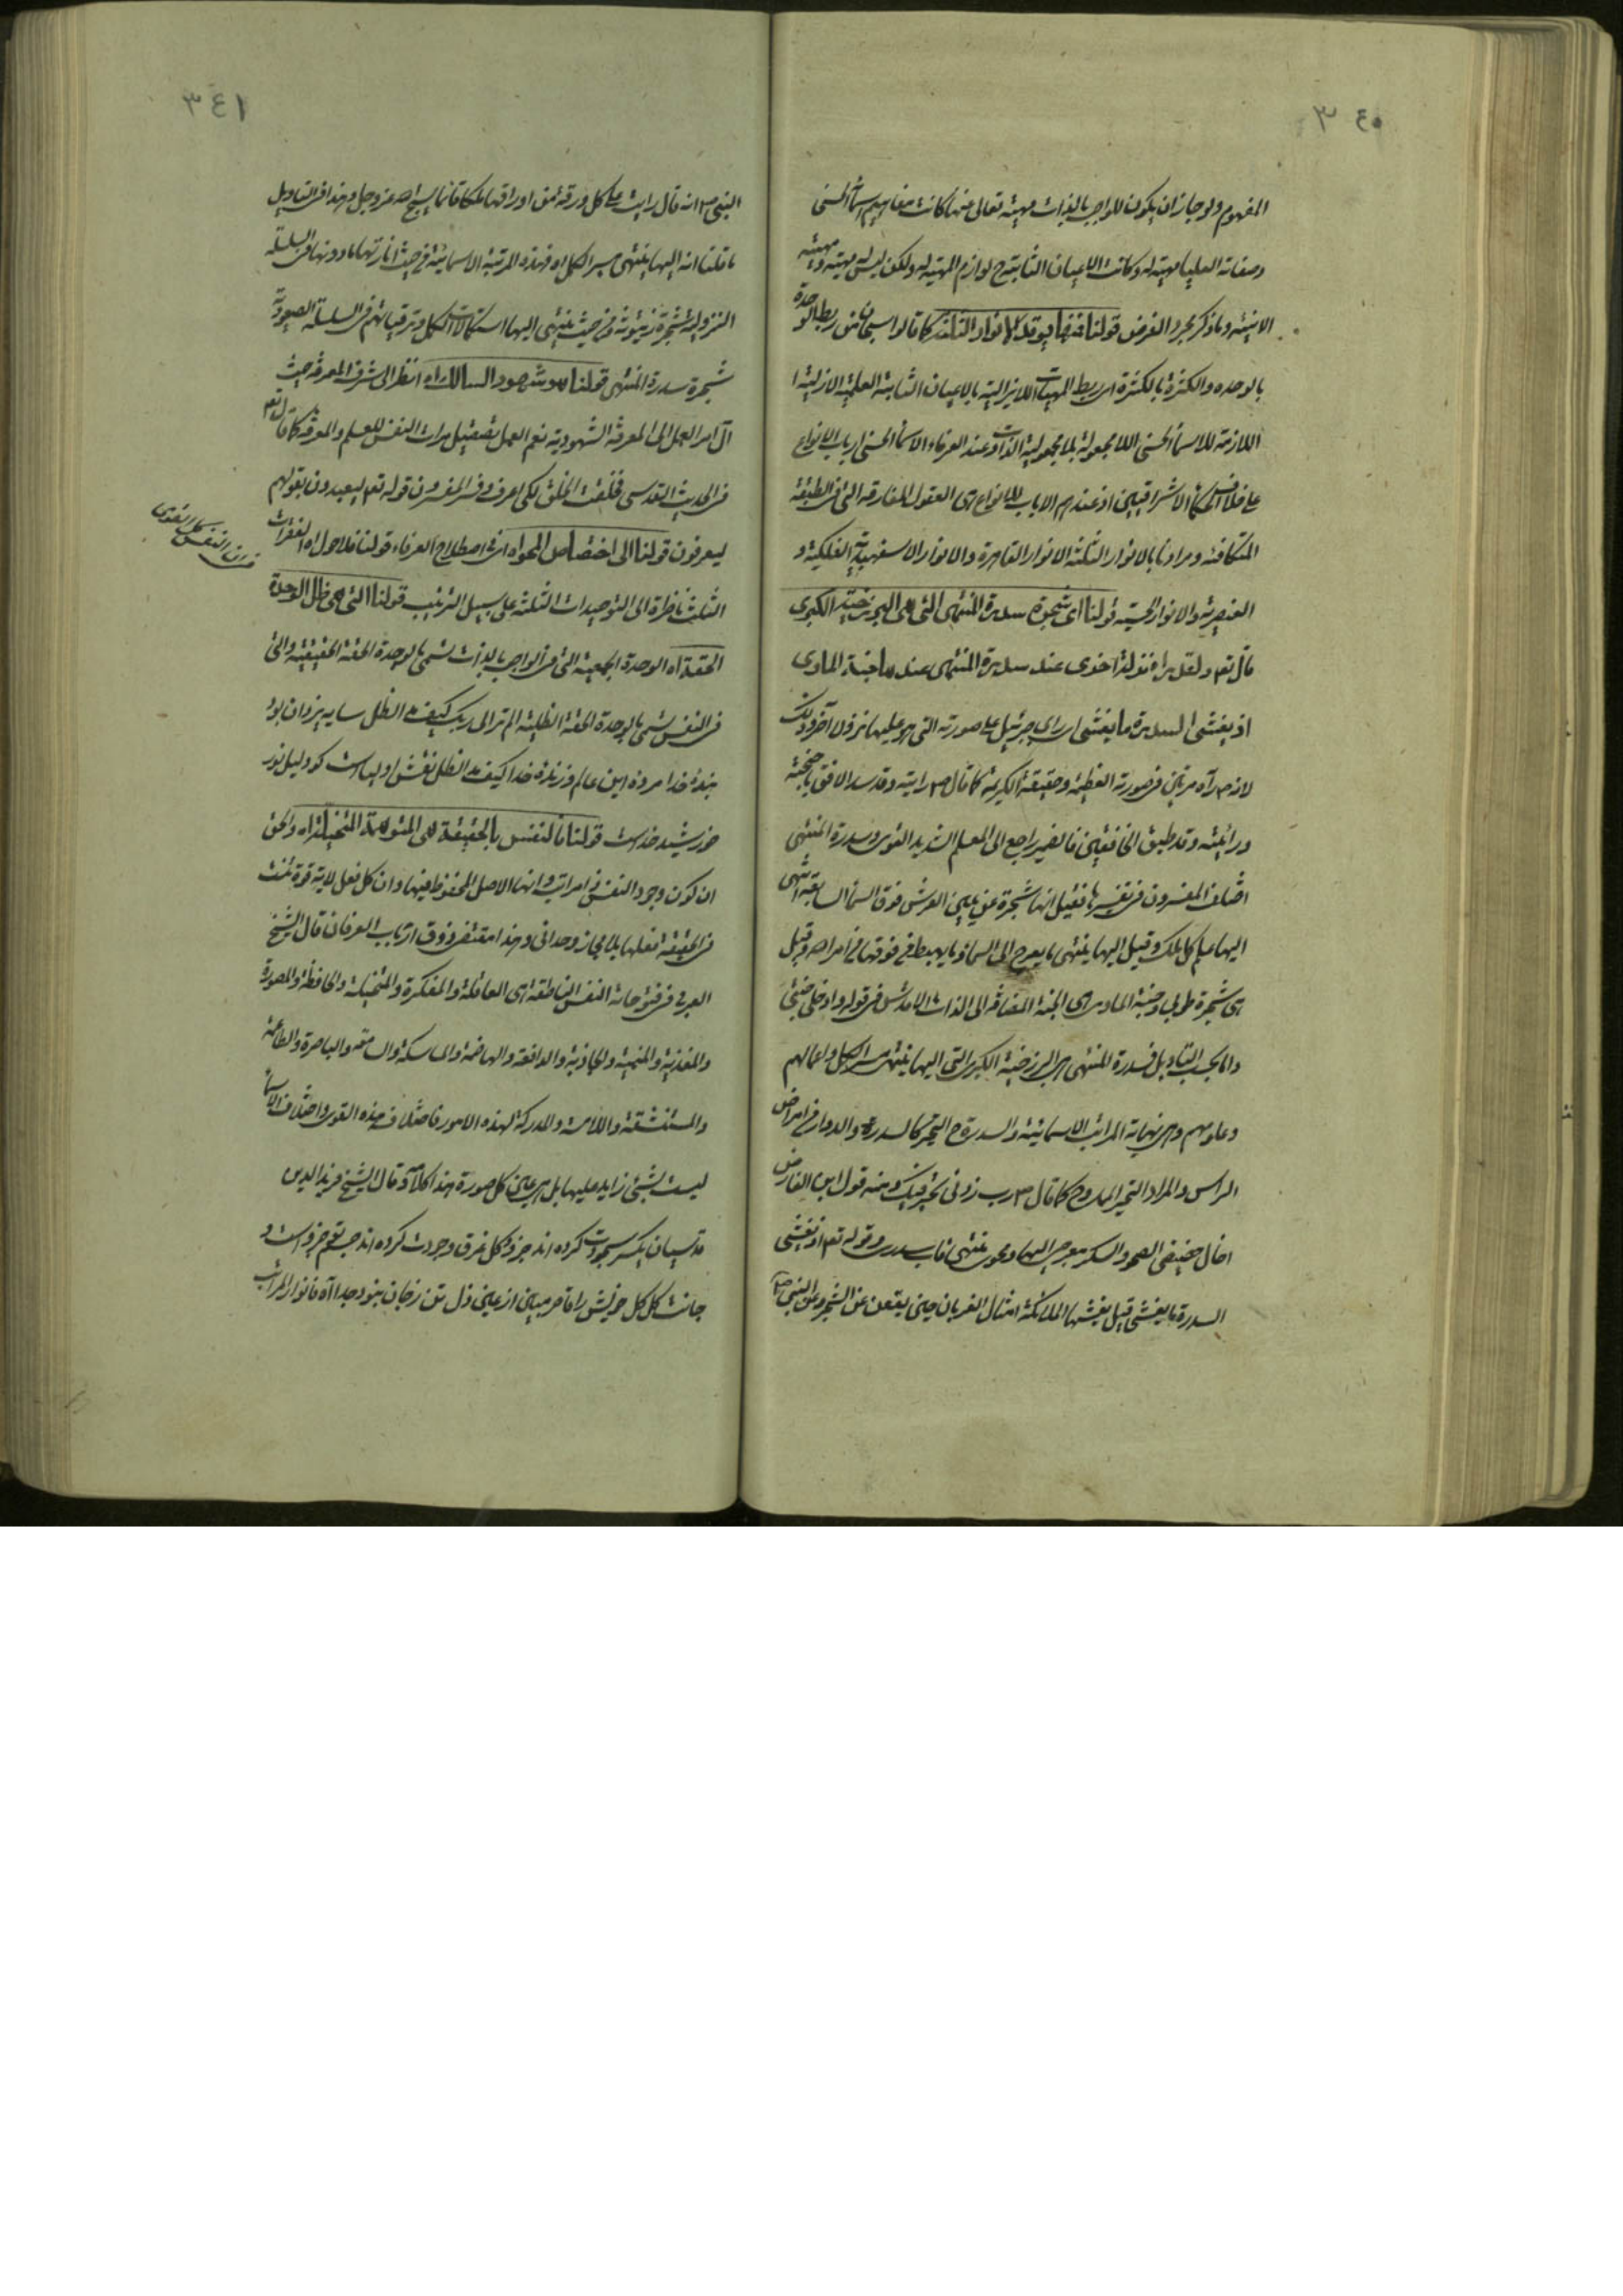 ٣٤٠
المفهوم ولو جاز ان يكون للواجب بالذات مهية تعالى عنها كانت مفاهيم اسمائه الحسنى
وصفاته العليا مهية له وكانت الاعيان الثابتة ح لوازم المهية له ولكن ليس له مهية ومهيته
الانية وما ذكر مجرد الفرض قولنا فمنها يوقد الانوار الثلثة كما قالوا سبحان من ربط الوحدة
بالوحدة والكثرة بالكثرة اى ربط المهيات اللايزالية بالاعيان الثابتة العلمية الازلية
اللازمة للاسماء الحسنى اللامجعولة بلا مجعولية الذات وعند العرفاء الاسماء الحسنى ارباب الانواع
على خلاف الحكماء الاشراقيين اذ عندهم الارباب للانواع هى العقول المفارقة التى فى الطبقة
المتكافئة ومرادنا بالانوار الثلثة الانوار القاهرة والانوار الاسفهبدية الفلكية و
العنصرية والانوار الحسية قولنا اى شجرة سدرة المنتهى التى هى البرزخية الكبرى
قال تع ولقد رآه نزلة اخرى عند سدرة المنتهى عندها جنة الماوى
اذ يغشى السدرة ما يغشى اى راى جبرئيل على صورته التى هو عليها نزولا آخر وذلك
لانه ص رآه مرتين فى صورته العظيمة وحقيقته الكريمة كما قال ص رايته وقد سد الافق باجنحته
ورائيته وقد طبق الخافقين فالضمير راجع الى المعلم الشديد القوى وسدرة المنتهى
اختلف المفسرون فى تفسيرها فقيل انها شجرة عن يمين العرش فوق السماء السابعة انتهى
اليها علم كل ملك وقيل اليها ينتهى ما يعرج الى السماء وما يهبط من فوقها من امر الله وقيل
هى شجرة طوبى وجنة الماوى اى الجنة المضافة الى الذات الاقدس فى قوله وادخلى جنتى
واما بحسب التاويل فسدرة المنتهى هى البرزخية الكبرى التى اليها ينتهى سير الكل واعمالهم
وعلومهم وهى نهاية المراتب الاسمائية والسدرة ح التحير كالسدر والدوار من امراض
الراس والمراد التحير الممدوح كما قال ص رب زدنى تحيرا فيك ومنه قول ابن الفارض
اخال حضيضى الصحو والسكر معرجى اليها ومحوى منتهى قاب سدرتى وقوله تع اذ يغشى
السدرة ما يغشى قيل يغشيها الملائكة امثال الغربان حين يقعن على الشجر وعن النبى ص
٣٤١
النبى ص انه قال رايت على كل ورقة من اوراقها ملكا قائما يسبح الله عز وجل وهذا فى التاويل
ما قلنا انه اليها ينتهى سير الكل اه فهذه المرتبة الاسمائية من حيث انارتها ما دونها فى السلسلة
النزولية شجرة زيتونة ومن حيث ينتهى اليها استكمالات الكمل وترقياتهم فى السلسلة الصعودية
شجرة سدرة المنتهى قولنا هو شهود السالك اه انظر الى شرف المعرفة حيث
آل امر العمل الى المعرفة الشهودية نعم العمل تصقيل مرات النفس للعلم والمعرفة كما قال تع
فى الحديث القدسى فخلقت الخلق لكى اعرف وفسر المفسرون قوله تع ليعبدون بقولهم
ليعرفون قولنا الى اختصاص الهواه اى فى اصطلاح العرفاء قولنا فلاحول اه الفقرات
الثلث ناظرة الى التوحيدات الثلثة على سبيل الترتيب قولنا التى هى ظل الوحدة
الحقة اه الوحدة الجمعية التى فى الواجب بالذات تسمى بالوحدة الحقة الحقيقية والتى
فى النفس تسمى بالوحدة الحقة الظلية الم تر الى ربك كيف مد الظل سايه يزدان بود
بنده خدا مرده اين عالم وزنده خدا كيف مد الظل نقش اولياست كو دليل نور
خورشيد خداست قولنا فالنفس بالحقيقة هى المتوهمة المتخيلة اه والحق
ان كون وجود النفس ذا مراتب وانها الاصل المحفوظ فيها وان كل فعل لاية قوة تنسب
فى الحقيقة فعلها بلا مجاز وجدانى وهذا مقتضى ذوق ارباب العرفان قال الشيخ
العربى فى فتوحاته النفس الناطقة هى العاقلة والمفكرة والمتخيلة والحافظة والمصورة
والمغذية والمنمية والجاذبة والدافعة والهاضمة والماسكة والسامعة والباصرة والطاعمة
والمستنشقة واللامسة والمدركة لهذه الامور فاختلاف هذه القوى واختلاف الاسماء
ليست بشئ زايد عليها بل هى عين كل صورة هذا كلامه وقال الشيخ فريد الدين
قدسيان يكسر سجودت كرده اند جزو وكل غرق وجودت كرده اند جسم تو جزوست و
جانت كل كل خويش را قاصر مبين از عين ذل تن زجان نبود جدا اه فانوار المراتب
فى ان النفس كل القوى